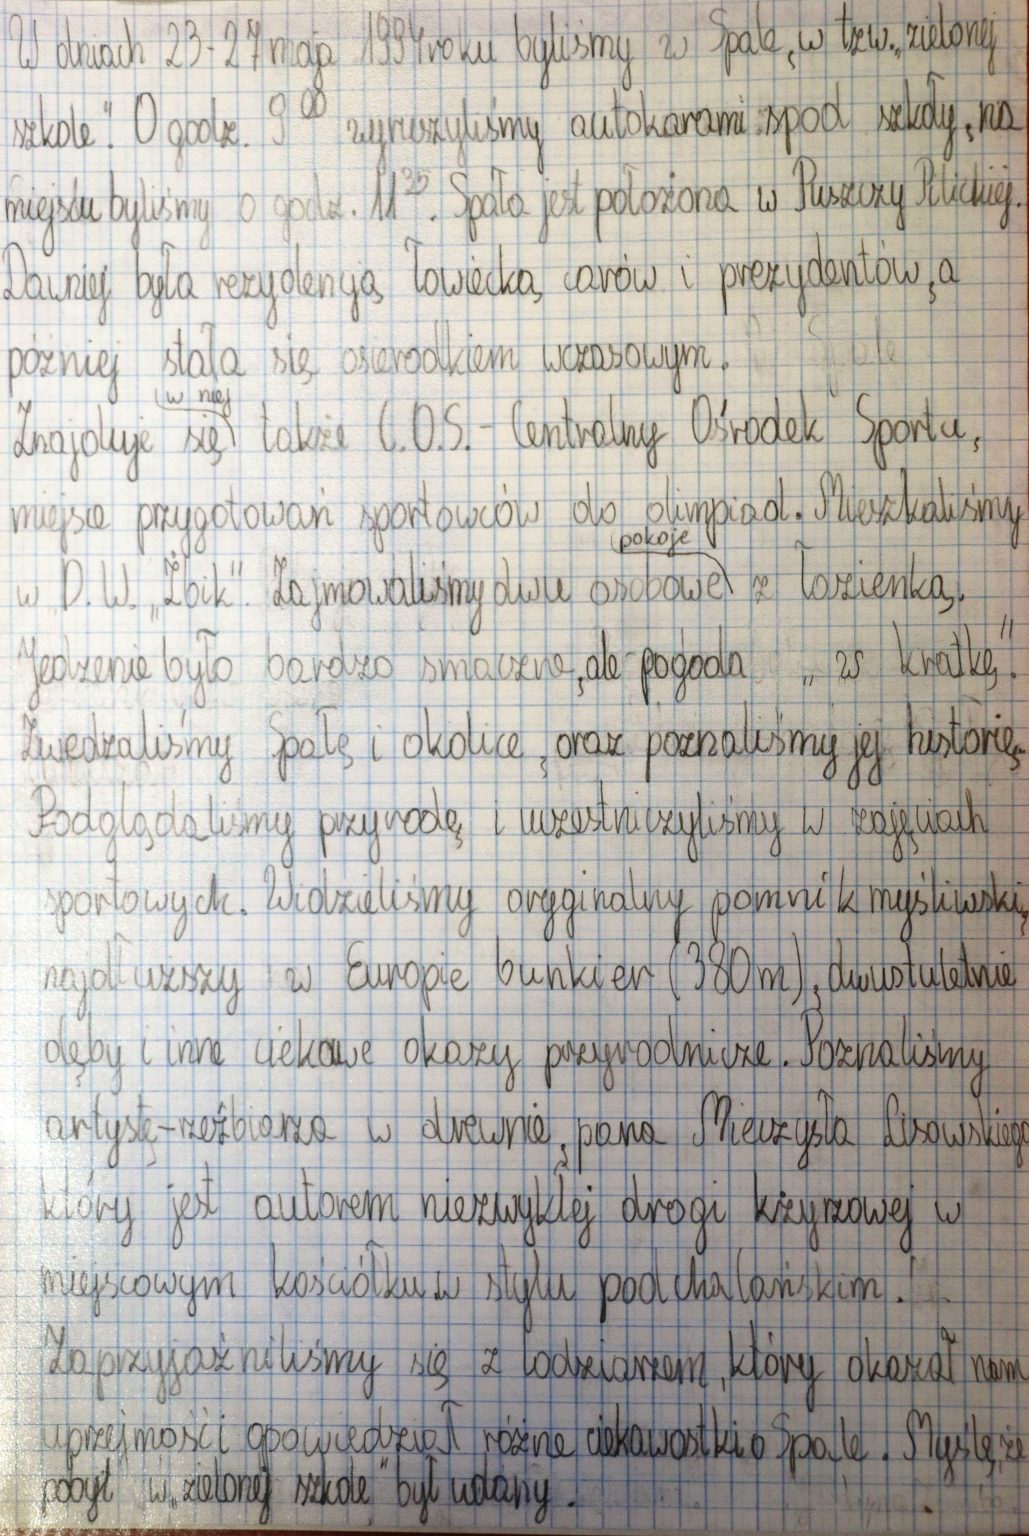 W dniach 23-27 maja 1994 roku byliśmy w Spale, w tzw. „zielonej
szkole". O godz. 9⁰⁰ wyruszyliśmy autokarami spod szkoły, na
miejscu byliśmy o godz. 11³⁵. Spała jest położona w Puszczy Pilickiej.
Dawniej była rezydencją łowiecką carów i prezydentów, a
później stała się osierodkiem wczasowym.
(w niej)
Znajduje się także C.O.S. - Centralny Ośrodek Sportu,
miejsce przygotowań sportowców do olimpiad. Mieszkaliśmy
(pokoje)
w D.W. „Żbik". Zajmowaliśmy dwu osobowe z łazienką.
Jedzenie było bardzo smaczne, ale pogoda „w kratkę".
Zwiedzaliśmy Spałę i okolice, oraz poznaliśmy jej historię.
Podglądaliśmy przyrodę i uczestniczyliśmy w zajęciach
sportowych. Widzieliśmy oryginalny pomnik myśliwski,
najdłuższy w Europie bunkier (380m), dwustuletnie
dęby i inne ciekawe okazy przyrodnicze. Poznaliśmy
artystę-rzeźbiarza w drewnie, pana Mieczysła Lisowskiego
który jest autorem niezwykłej drogi krzyrzowej w
miejscowym kościółku w stylu podchalańskim.
Zaprzyjaźniliśmy się z lodziarzem, który okazał nam
uprzejmość i opowiedział różne ciekawostki o Spale. Myślę, że
pobyt w „zielonej szkole" był udany.